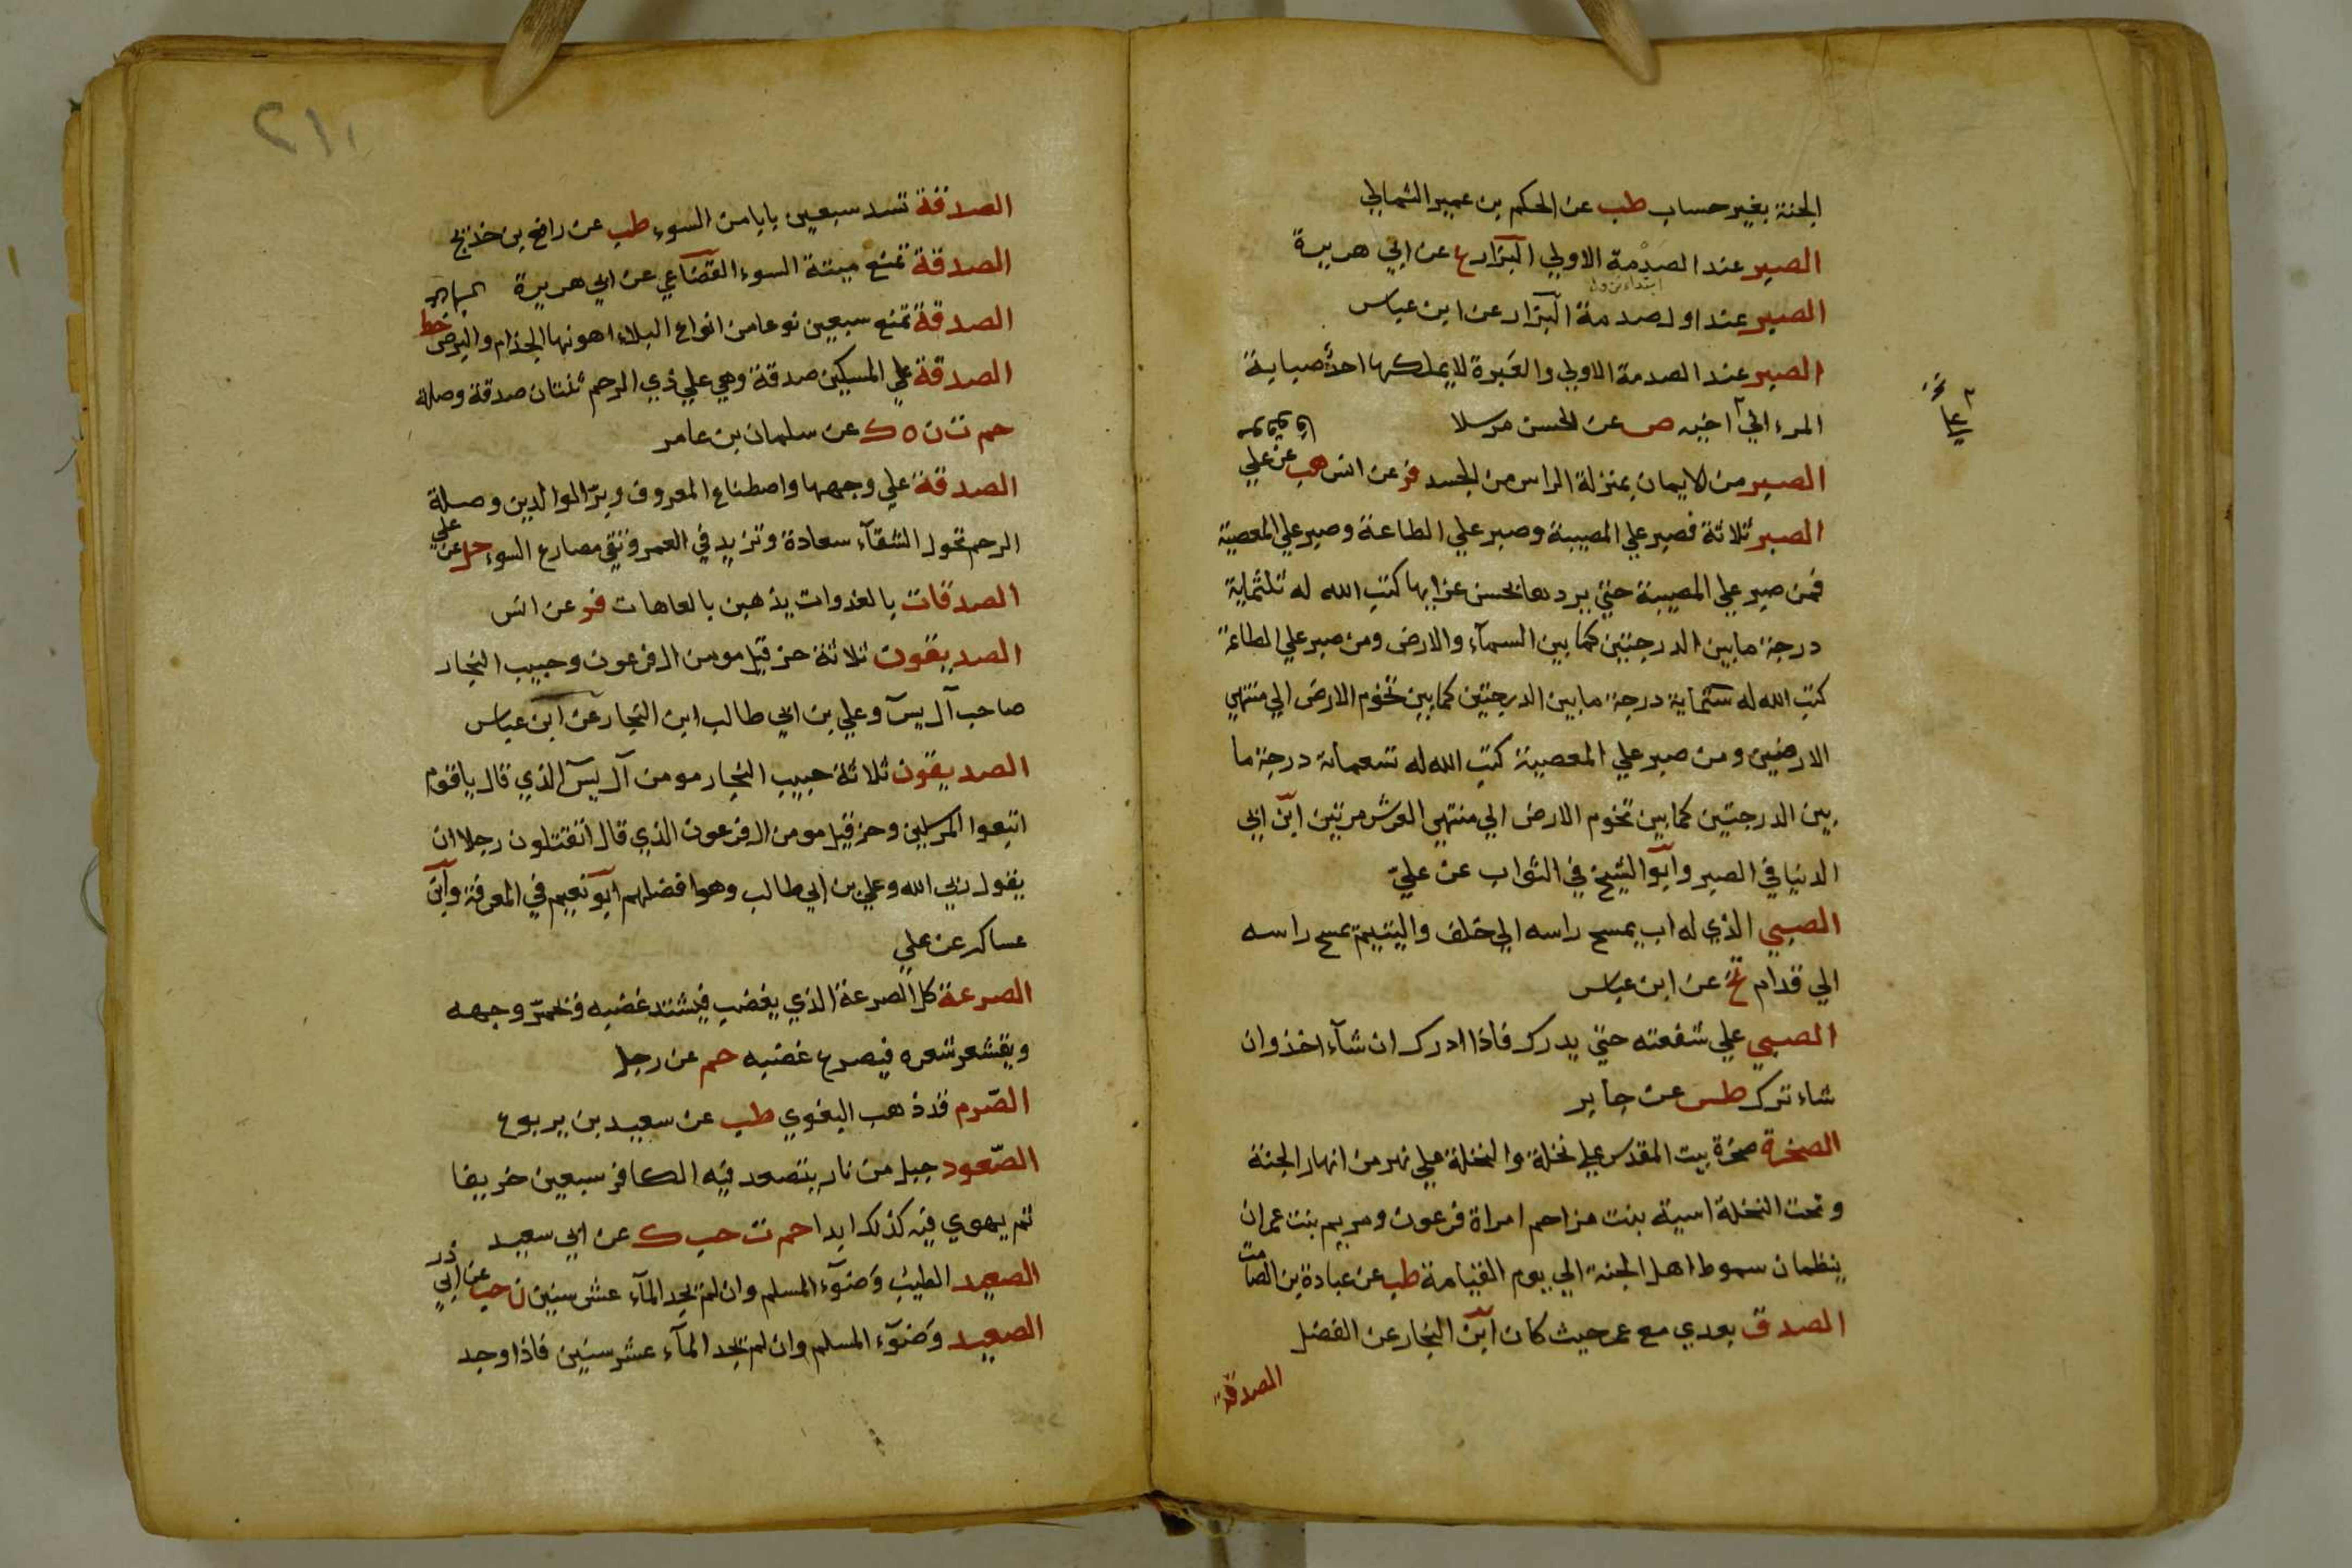 الجنة بغير حساب طب عن الحكم بن عمير الثمالي
الصبر عند الصدمة الاولي البزار ع عن ابي هريرة
الصبر عند اول صدمة البزار عن ابن عباس
الصبر عند الصدمة الاولي والعَبرة لايملكها احدٌ صبابة
المرء الي اخيه ص عن الحسن مرسلا
الصبر من الايمان بمنزلة الراس من الجسد فر عن انس هب عن علي
الصبر ثلاثة فصبر علي المصيبة وصبر علي الطاعة وصبر علي المعصية
فمن صبر علي المصيبة حتي يردها بحسن عزايها كتب الله له ثلثماية
درجة مابين الدرجتين كما بين السمآء والارض ومن صبر علي الطاعة
كتب الله له ستماية درجة مابين الدرجتين كما بين تخوم الارض الي منتهي
الارضين ومن صبر علي المعصية كتب الله له تسعماية درجة ما
بين الدرجتين كما بين تخوم الارض الي منتهي العرش مرتين ابن ابي
الدنيا في الصبر وابو الشيخ في الثواب عن علي
الصبي الذي له اب يمسح راسه الي خلف واليتيم يمسح راسه
الي قدام تخ عن ابن عباس
الصبي علي شفعته حتي يدرك فاذا ادرك ان شآء اخذ وان
شاء ترك طس عن جابر
الصخرة صخرة بيت المقدس علي نخلة والنخلة علي نهر من انهار الجنة
وتحت النخلة اسية بنت مزاحم امراة فرعون ومريم بنت عمران
ينظمان سموط اهل الجنة الي يوم القيامة طب عن عبادة بن الصامت
الصدق بعدي مع عمر حيث كان ابن النجار عن الفضل
الصدقة
٢١١
الصدقة تسد سبعين بابا من السوء طب عن رافع بن خديج
الصدقة تمنع ميتة السوء القضاعي عن ابي هريرة
الصدقة تمنع سبعين نوعا من انواع البلاء اهونها الجذام والبرص خط
الصدقة علي المسكين صدقة وهي علي ذي الرحم ثنتان صدقة وصلة
حم ت ن ه ك عن سلمان بن عامر
الصدقة علي وجهها واصطناع المعروف وبرّ الوالدين وصلة
الرحم تحول الشقآء سعادة وتزيد في العمر وتقي مصارع السوء حل عن علي
الصدقات بالغدوات يذهبن بالعاهات فر عن انس
الصديقون ثلاثة حزقيل مومن ال فرعون وحبيب النجار
صاحب آل يس وعلي بن ابي طالب ابن النجار عن ابن عباس
الصديقون ثلاثة حبيب النجار مومن آل يس الذي قال ياقوم
اتبعوا المرسلين وحزقيل مومن ال فرعون الذي قال اتقتلون رجلا ان
يقول ربي الله وعلي بن ابي طالب وهو افضلهم ابو نعيم في المعرفة وابن
عساكر عن علي
الصرعة كل الصرعة الذي يغضب فيشتد غضبه ويحمرّ وجهه
ويقشعر شعره فيصرع غضبه حم عن رجل
الصّرم قد ذهب البغوي طب عن سعيد بن يربوع
الصّعود جبل من نار يتصعد فيه الكافر سبعين خريفا
ثم يهوي فيه كذلك ابدا حم ت حب ك عن ابي سعيد
الصعيد الطيب وَضوٓء المسلم وان لم يجد المآء عشر سنين ن حب عن ابي ذر
الصعيد وَضوٓء المسلم وان لم يجد المآء عشر سنين فاذا وجد